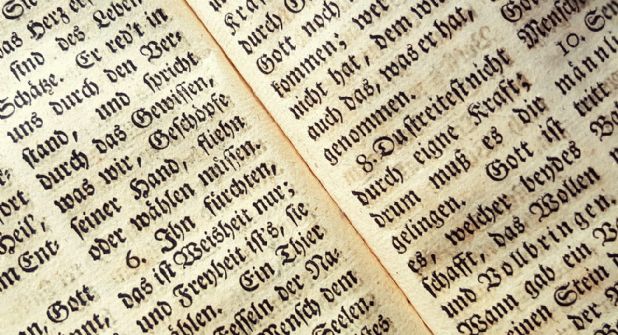 Sie
sind des Leben
Schätze. Er red't in
uns durch den Ver-
stand, und spricht
durch das Gewissen,
was wir, Geschöpfe
seiner Hand, fliehn
oder wählen müssen.
6. Ihn fürchten,
das ist Weisheit nur;
und Freyheit ist's, sie
Ein Thier
Fesseln der Na-
Mensch dem
Seelen.
Heil,
m Ent
Gott
durch G
Gott noch
kommen; wer
nicht hat, dem
auch das, was er hat,
genommen.
8. Du streitest nicht
durch eigne Kraft;
drum muß es dir
gelingen. Gott ist
es, welcher beydes
schafft, das Wollen
und Vollbringen.
Wann gab ein
Stein
10.
männli
tritt